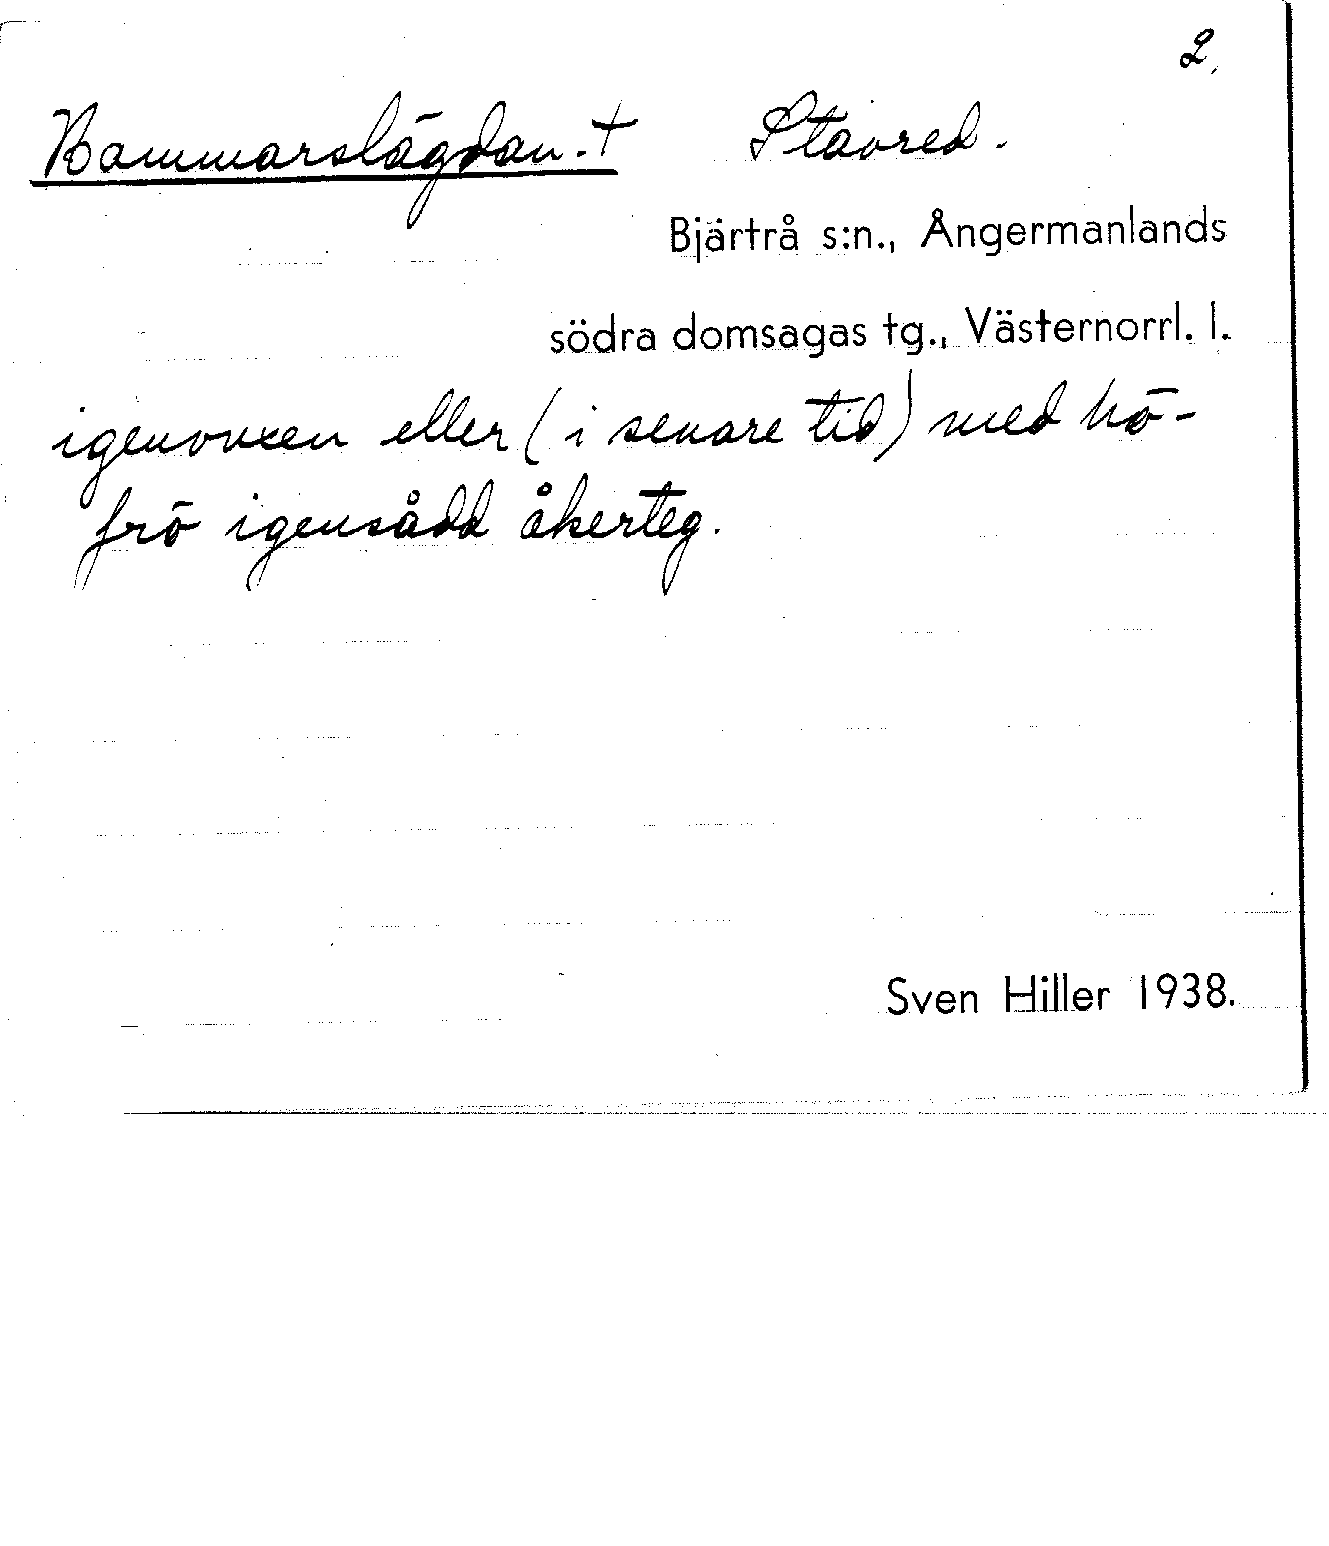 2.
Bammarslägdan. + Stavred.
Bjärtrå s:n., Ångermanlands
södra domsagas tg., Västernorrl. l.
igenvuxen eller (i senare tid) med hö-
frö igensådd åkerteg.
Sven Hiller 1938.